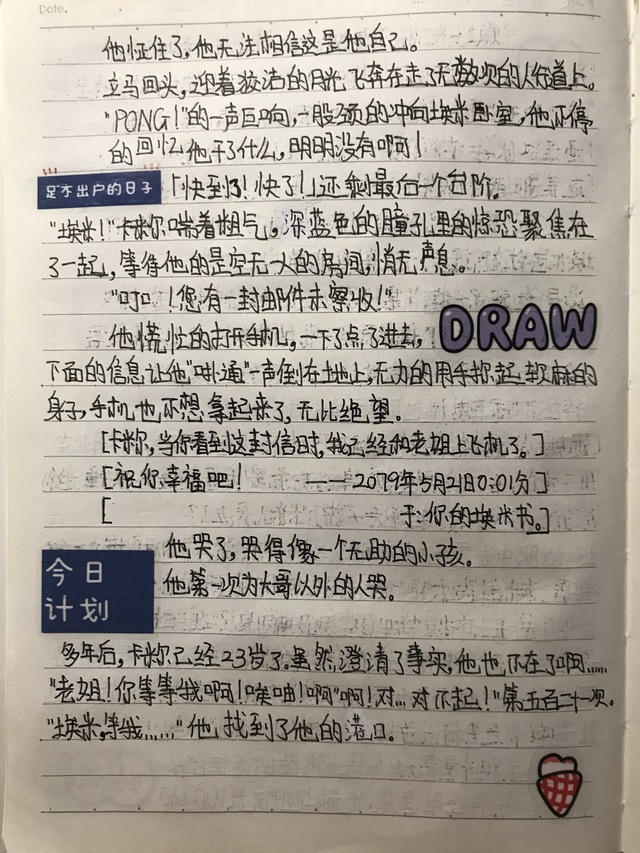 Date.
他怔住了,他无法相信这是他自己。
立马回头,迎着狡洁的月光飞奔在走了无数次的人行道上。
"PONG!"的一声巨响,一股强烈的冲向埃米卧室,他不停
的回忆他干了什么,明明没有啊!
足不出户的日子
「快到了!快了!」还剩最后一个台阶。
"埃米!"卡米尔喘着粗气,深蓝色的瞳孔里的惊恐聚焦在
了一起,等待他的是空无一人的房间,悄无声息。
"叮!您有一封邮件未察收!"
他慌忙的打开手机,一下了点了进去,
DRAW
下面的信息让他"啉通"一声倒在土地上,无力的用手撑起软麻的
身子,手机也不想拿起来了,无比绝望。
[卡米尔,当你看到这封信时,我已经和老姐上飞机了。]
[祝你幸福吧! ——2079年5月21日0:01分]
[ 于:你的埃米书。]
他哭了,哭得像一个无助的小孩。
今日
计划
他第一次为大哥以外的人哭。
多年后,卡米尔已经23岁了。虽然澄清了事实,他也不在了啊……
"老姐!你等等我啊!唉呦!啊"啊!对…对不起!"第五百二十一次。
"埃米,等我……"他找到了他的港口。